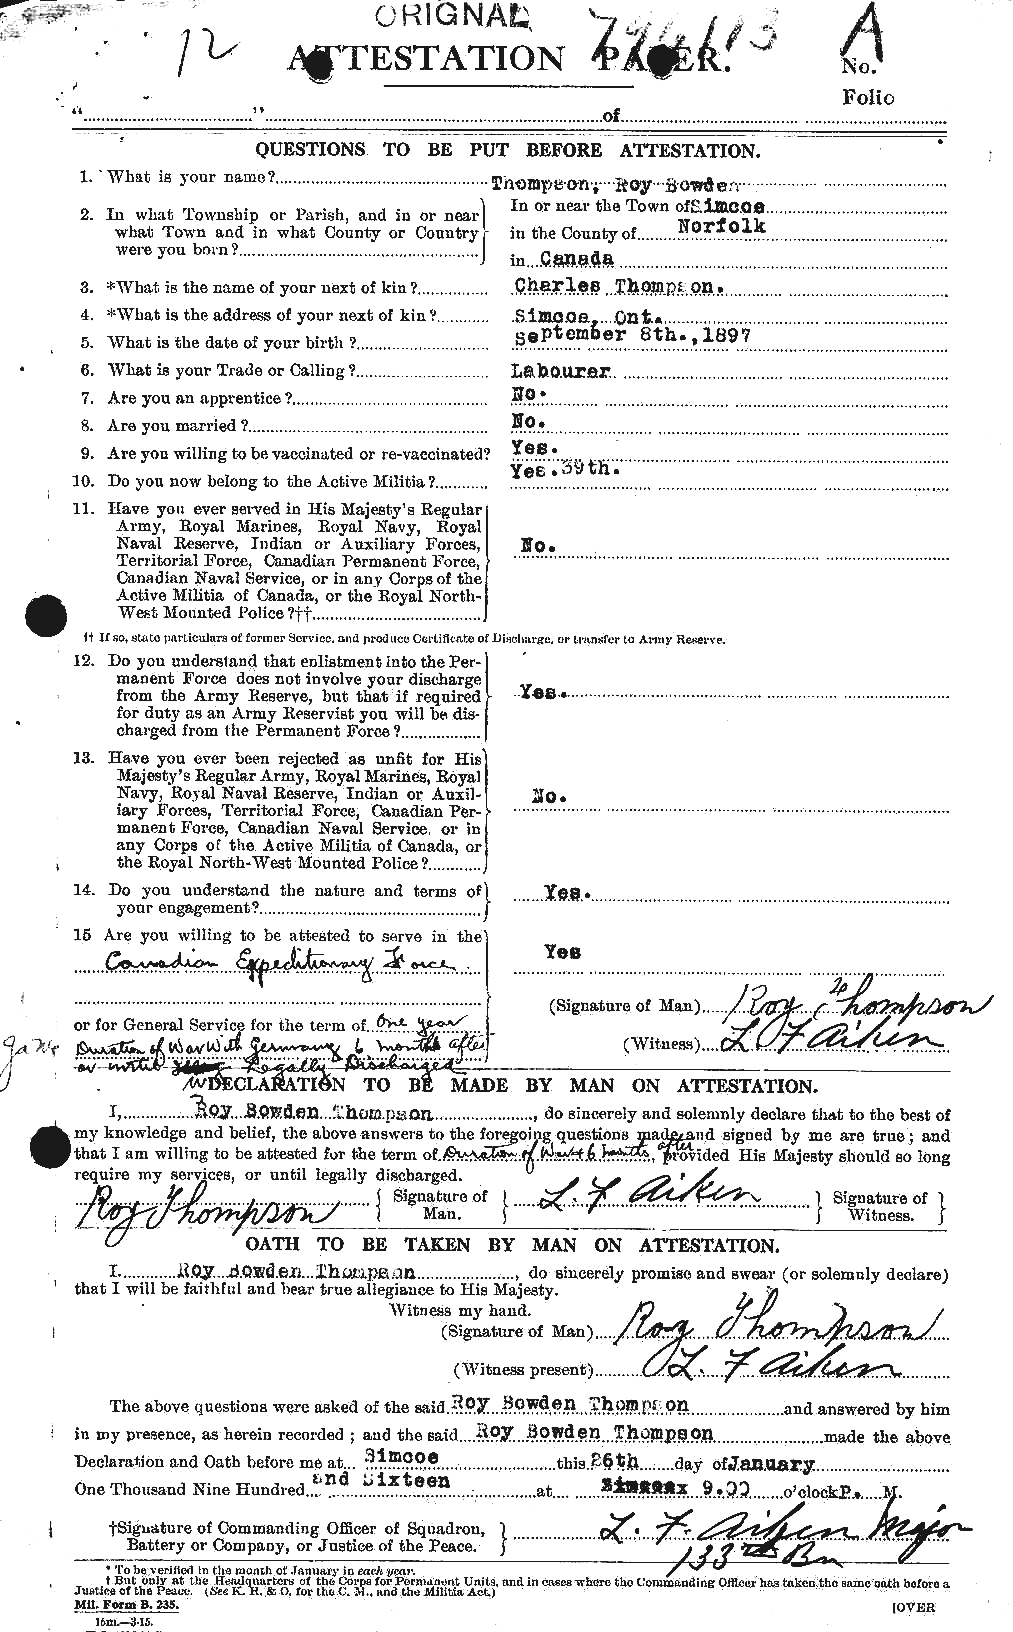 ORIGNAL
12
A
ATTESTATION PAPER.
No.
Folio
"............" ............of............
QUESTIONS TO BE PUT BEFORE ATTESTATION.
1. What is your name?............ Thompson, Roy Bowden
2. In what Township or Parish, and in or near what Town and in what County or Country were you born?............
In or near the Town of Simcoe
in the County of Norfolk
in Canada
3. *What is the name of your next of kin?............ Charles Thompson.
4. *What is the address of your next of kin?............ Simcoe, Ont.
5. What is the date of your birth?............ September 8th.,1897
6. What is your Trade or Calling?............ Labourer
7. Are you an apprentice?............ No.
8. Are you married?............ No.
9. Are you willing to be vaccinated or re-vaccinated? Yes.
10. Do you now belong to the Active Militia?............ Yes.39th.
11. Have you ever served in His Majesty's Regular
Army, Royal Marines, Royal Navy, Royal
Naval Reserve, Indian or Auxiliary Forces,
Territorial Force, Canadian Permanent Force,
Canadian Naval Service, or in any Corps of the
Active Militia of Canada, or the Royal North-
West Mounted Police?††............ No.
†† If so, state particulars of former Service, and produce Certificate of Discharge, or transfer to Army Reserve.
12. Do you understand that enlistment into the Per-
manent Force does not involve your discharge
from the Army Reserve, but that if required
for duty as an Army Reservist you will be dis-
charged from the Permanent Force?............ Yes.
13. Have you ever been rejected as unfit for His
Majesty's Regular Army, Royal Marines, Royal
Navy, Royal Naval Reserve, Indian or Auxil-
iary Forces, Territorial Force, Canadian Per-
manent Force, Canadian Naval Service, or in
any Corps of the Active Militia of Canada, or
the Royal North-West Mounted Police?............ No.
14. Do you understand the nature and terms of
your engagement?............ Yes.
15 Are you willing to be attested to serve in the
Canadian Expeditionary Force Yes
(Signature of Man) Roy Thompson
or for General Service for the term of One year
(Witness) L F Aiken
Duration of War With Germany 6 months after
or until Legally Discharged
DECLARATION TO BE MADE BY MAN ON ATTESTATION.
I, Roy Bowden Thompson, do sincerely and solemnly declare that to the best of
my knowledge and belief, the above answers to the foregoing questions made and signed by me are true; and
that I am willing to be attested for the term of Duration of War & 6 months after, provided His Majesty should so long
require my services, or until legally discharged.
Roy Thompson { Signature of Man. } L. F Aiken } Signature of Witness. }
OATH TO BE TAKEN BY MAN ON ATTESTATION.
I Roy Bowden Thompson, do sincerely promise and swear (or solemnly declare)
that I will be faithful and bear true allegiance to His Majesty.
Witness my hand.
(Signature of Man) Roy Thompson
(Witness present) L. F Aiken
The above questions were asked of the said Roy Bowden Thompson and answered by him
in my presence, as herein recorded; and the said Roy Bowden Thompson made the above
Declaration and Oath before me at Simcoe this 26th day of January
One Thousand Nine Hundred and Sixteen at 9.00 o'clock P. M.
†Signature of Commanding Officer of Squadron,
Battery or Company, or Justice of the Peace. } L. F. Aiken Major
133rd Bn
* To be verified in the month of January in each year.
† But only at the Headquarters of the Corps for Permanent Units, and in cases where the Commanding Officer has taken the same oath before a
Justice of the Peace. (See K. R. & O. for the C. M., and the Militia Act.)
Mil. Form B. 235.
15m.—3-15.
[OVER